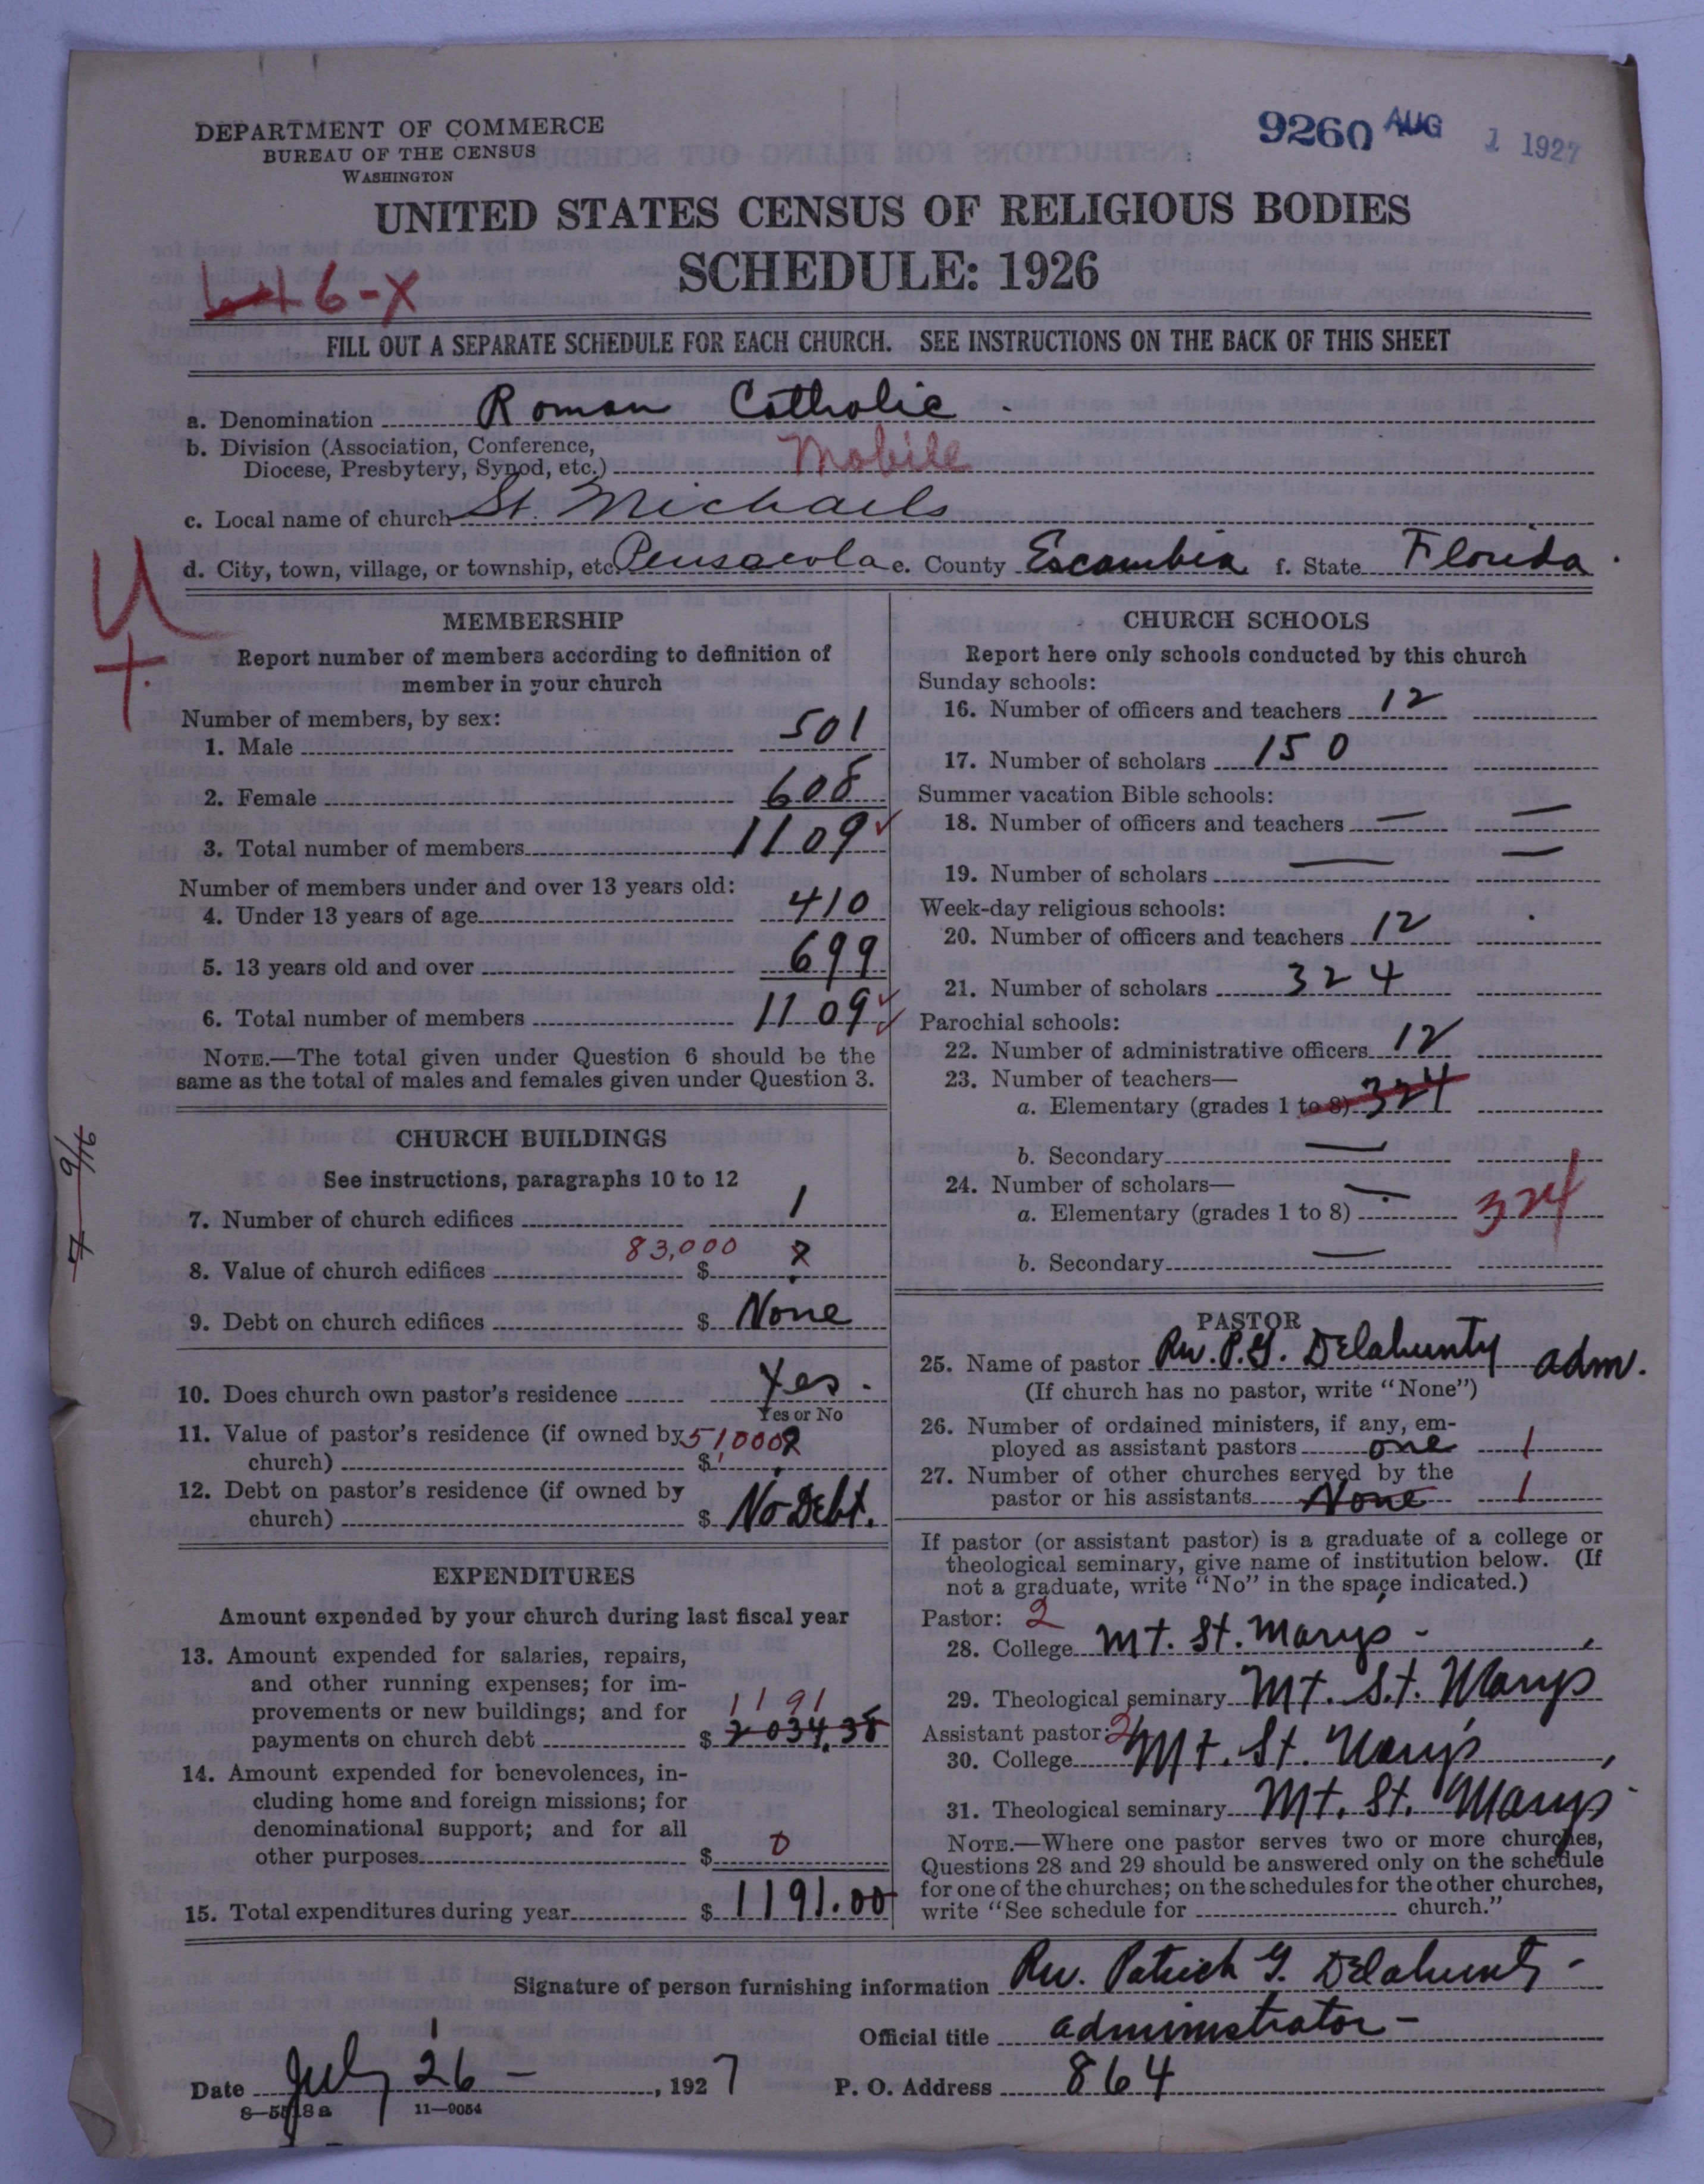 DEPARTMENT OF COMMERCE
BUREAU OF THE CENSUS
WASHINGTON
9260 AUG 1 1927
UNITED STATES CENSUS OF RELIGIOUS BODIES
SCHEDULE: 1926
46-X
FILL OUT A SEPARATE SCHEDULE FOR EACH CHURCH. SEE INSTRUCTIONS ON THE BACK OF THIS SHEET
a. Denomination Roman Catholic.
b. Division (Association, Conference,
Diocese, Presbytery, Synod, etc.) Mobile
c. Local name of church St. Michaels
d. City, town, village, or township, etc. Pensacola e. County Escambia f. State Florida.
U
+
MEMBERSHIP
Report number of members according to definition of
member in your church
Number of members, by sex:
1. Male 501
2. Female 608
3. Total number of members 1109 ✓
Number of members under and over 13 years old:
4. Under 13 years of age 410
5. 13 years old and over 699
6. Total number of members 1109 ✓✓
NOTE.—The total given under Question 6 should be the
same as the total of males and females given under Question 3.
7 9/16
CHURCH BUILDINGS
See instructions, paragraphs 10 to 12
7. Number of church edifices 1
8. Value of church edifices 83,000 $ ?
9. Debt on church edifices $ None
10. Does church own pastor's residence Yes.
Yes or No
11. Value of pastor's residence (if owned by 51000 ?
church) $
12. Debt on pastor's residence (if owned by
church) $ No Debt.
EXPENDITURES
Amount expended by your church during last fiscal year
13. Amount expended for salaries, repairs,
and other running expenses; for im-
provements or new buildings; and for 1191
payments on church debt $ 2034.38
14. Amount expended for benevolences, in-
cluding home and foreign missions; for
denominational support; and for all
other purposes $ 0
15. Total expenditures during year $ 1191.00
CHURCH SCHOOLS
Report here only schools conducted by this church
Sunday schools:
16. Number of officers and teachers 12
17. Number of scholars 150
Summer vacation Bible schools:
18. Number of officers and teachers — —
19. Number of scholars — —
Week-day religious schools:
20. Number of officers and teachers 12
21. Number of scholars 324
Parochial schools:
22. Number of administrative officers 12
23. Number of teachers—
a. Elementary (grades 1 to 8) 324
b. Secondary —
24. Number of scholars—
a. Elementary (grades 1 to 8) — 324
b. Secondary —
PASTOR
25. Name of pastor Rev. P. G. Delahunty adm.
(If church has no pastor, write "None")
26. Number of ordained ministers, if any, em-
ployed as assistant pastors one 1
27. Number of other churches served by the
pastor or his assistants None 1
If pastor (or assistant pastor) is a graduate of a college or
theological seminary, give name of institution below. (If
not a graduate, write "No" in the space indicated.)
Pastor: 2
28. College Mt. St. Marys -
29. Theological seminary Mt. St. Marys
Assistant pastor: 2
30. College Mt. St. Mary's
31. Theological seminary Mt. St. Marys
NOTE.—Where one pastor serves two or more churches,
Questions 28 and 29 should be answered only on the schedule
for one of the churches; on the schedules for the other churches,
write "See schedule for church."
Signature of person furnishing information Rev. Patrick G. Delahunty -
Official title administrator -
Date July 26 -, 1927 P. O. Address 864
8—5518 a 11—9054